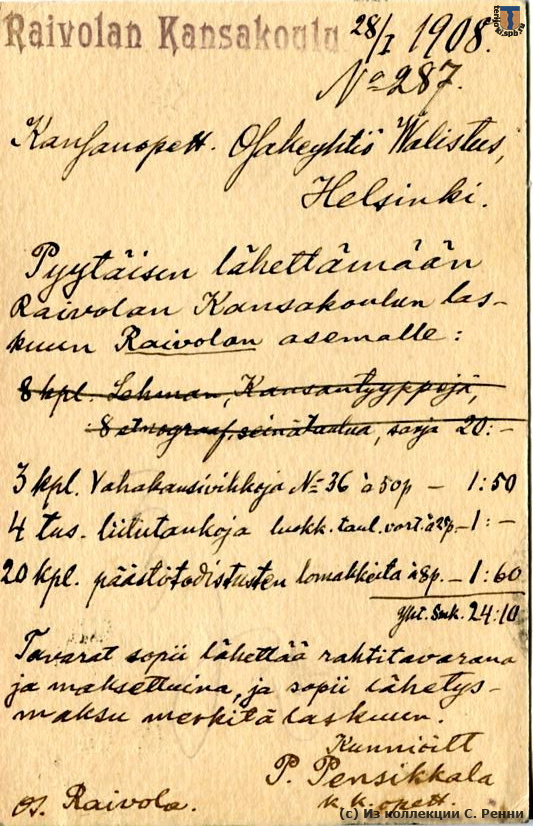 Raivolan Kansakoulu 28/I 1908.
No 287.
Kansanopett. Osakeyhtiö Walistus,
Helsinki.
Pyytäisin lähettämään
Raivolan Kansakoulun las-
kuun Raivolan asemalle:
8 kpl. Lehman, Kansantyyppejä,
8 etnograaf. seinätaulua, sarja 20:-
3 kpl. Vahakansivihkoja No 36 à 50p - 1:50
4 tus. liitutankoja luokk. taul. vart. - 1:-
20 kpl. päästötodistusten lomakkeita à 8p. - 1:60
Yht. Smk. 24:10
Tavarat sopii lähettää rahtitavarana
ja maksettuina, ja sopii lähetys-
maksu merkitä laskuun.
Kunnioitt
P. Pensikkala
k.k. opett.
os. Raivola.
(c) Из коллекции С. Ренни
terijoki.spb.ru